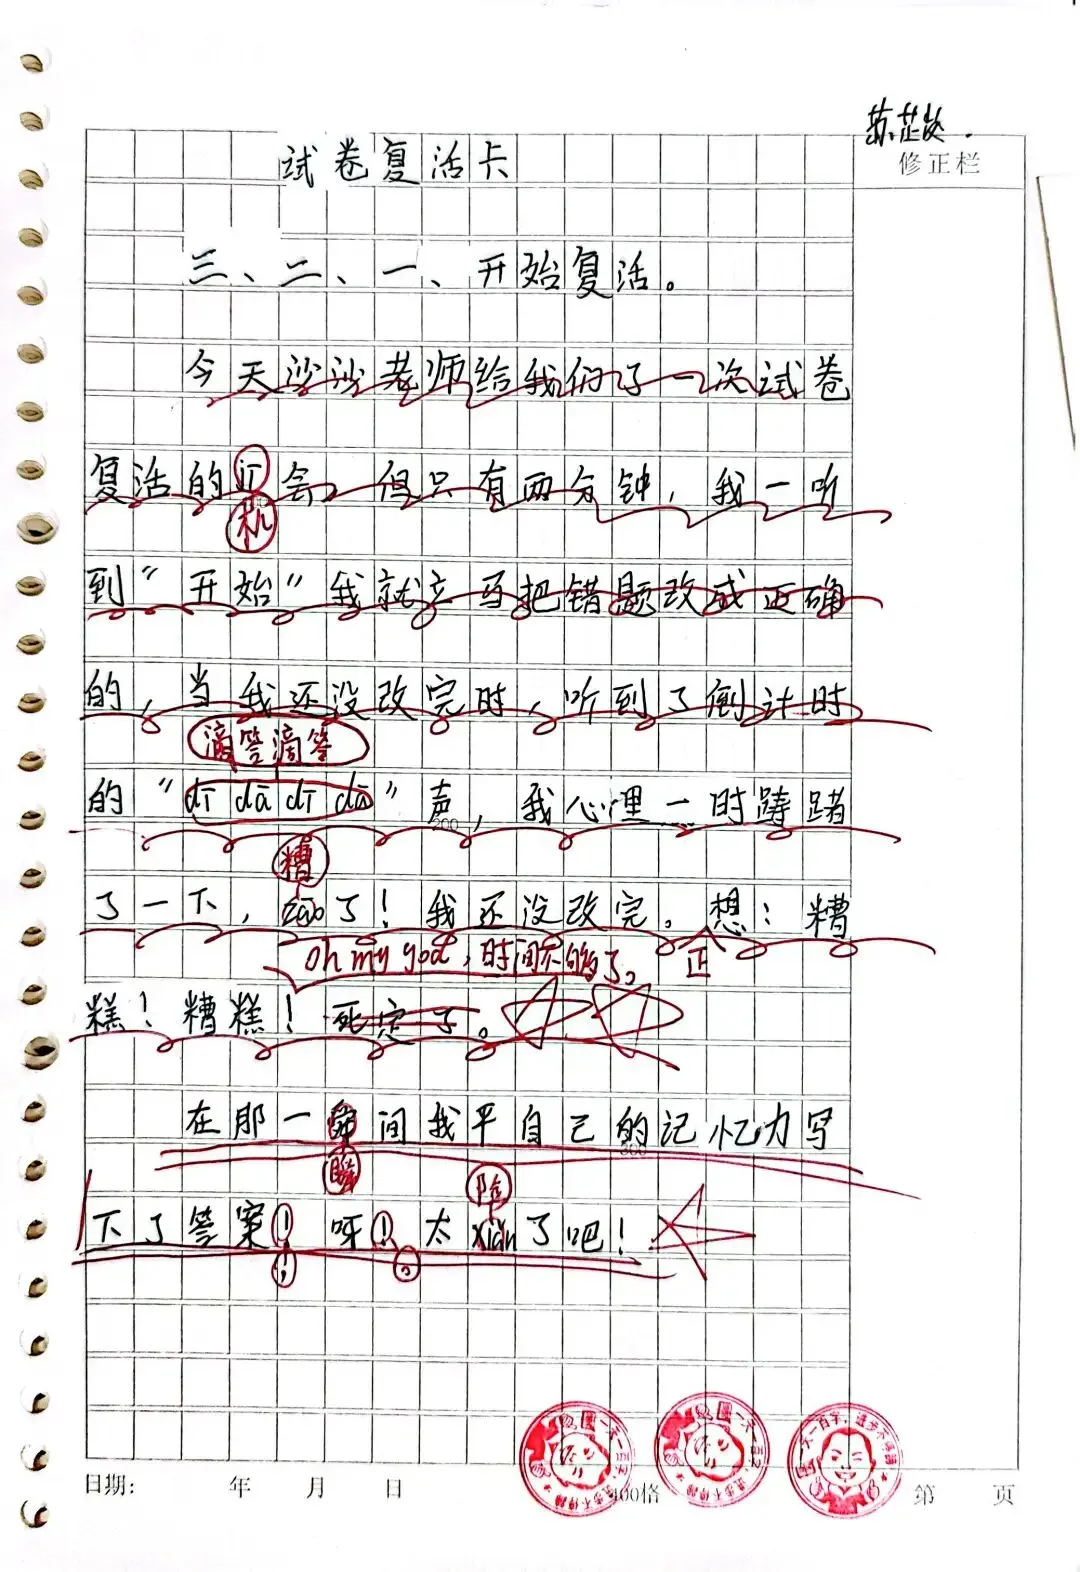 苏芷
修正栏
试卷复活卡
三、二、一、开始复活。
今天沙沙老师给我们了一次试卷
复活的jī会。但只有两分钟，我一听
机
到“开始”我就立马把错题改成正确
的，当我还没改完时，听到了倒计时
滴答滴答
的“dī dā dī dā”声，我心理一时踌躇
200
糟
了一下，zāo了！我还没改完。想：糟
oh my god，时间不够了。
正
糕！糟糕！死定了。
在那一间我平自己的记忆力写
300
瞬
险
下了答案！呀！太xiǎn了吧！
，
。
日期： 年 月 日
400格
第 页